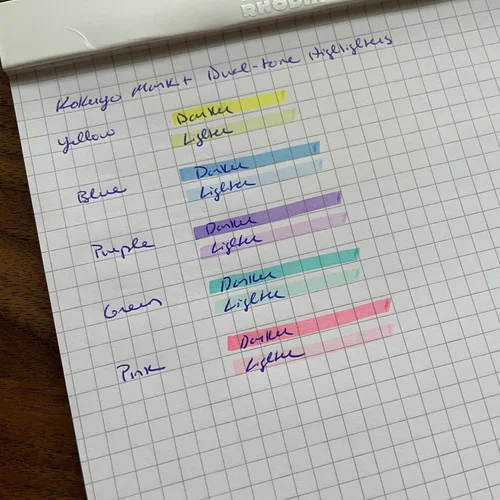 RHODIA
Kokuyo Mark+ Dual-tone Highlighters
Yellow Darker
Lighter
Blue Darker
Lighter
Purple Darker
Lighter
Green Darker
Lighter
Pink Darker
Lighter